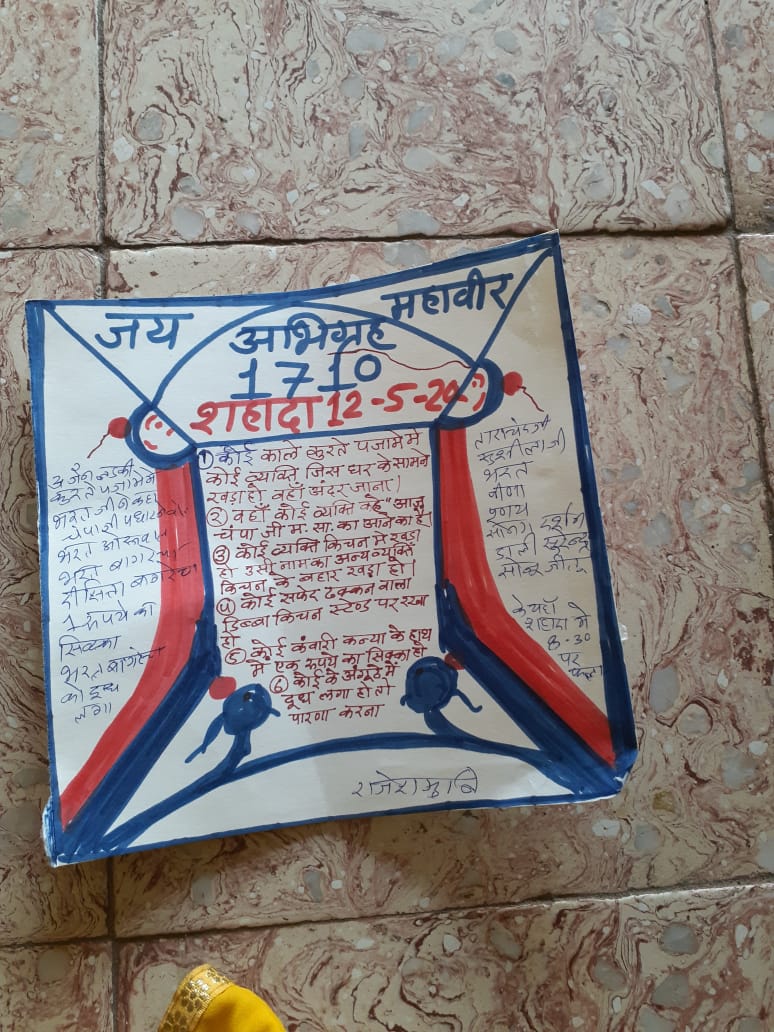 जय अभिग्रह महावीर
1710
शहादा 12-5-20
① कोई काले कुरते पजामे मे
कोई व्यक्ति जिस घर के सामने
खडा हो वहाँ अंदर जाना।
② वहाँ कोई व्यक्ति कहे "आज
चंपा जी म. सा. का आने का है।
③ कोई व्यक्ति किचन मे खडा
हो उसी नाम का अन्य व्यक्ति
किचन के बहार खडा हो।
④ कोई सफेद ढक्कन वाला
डिब्बा किचन स्टेन्ड पर रखा
हो
⑤ कोई कंवारी कन्या के हाथ
मे एक रूपये का सिक्का हो
⑥ कोई के अंगूठे मे
दूध लगा हो तो
पारणा करना
कुरते पजामे मे
भरत जी ने कहा
भरत ओसवाल
भरत बागरेचा
दीक्षिता बागरेचा
1 रूपये का
सिक्का
भरत बागरेचा
को दूध
लगा
ताराचंद जी
सुशीला जी
भरत
वीणा
प्रणय
सोनू दर्शन
डाली सुरेन्द्र
के यहाँ
शहादा मे
8-30
पर
फला
राजेश मुनि